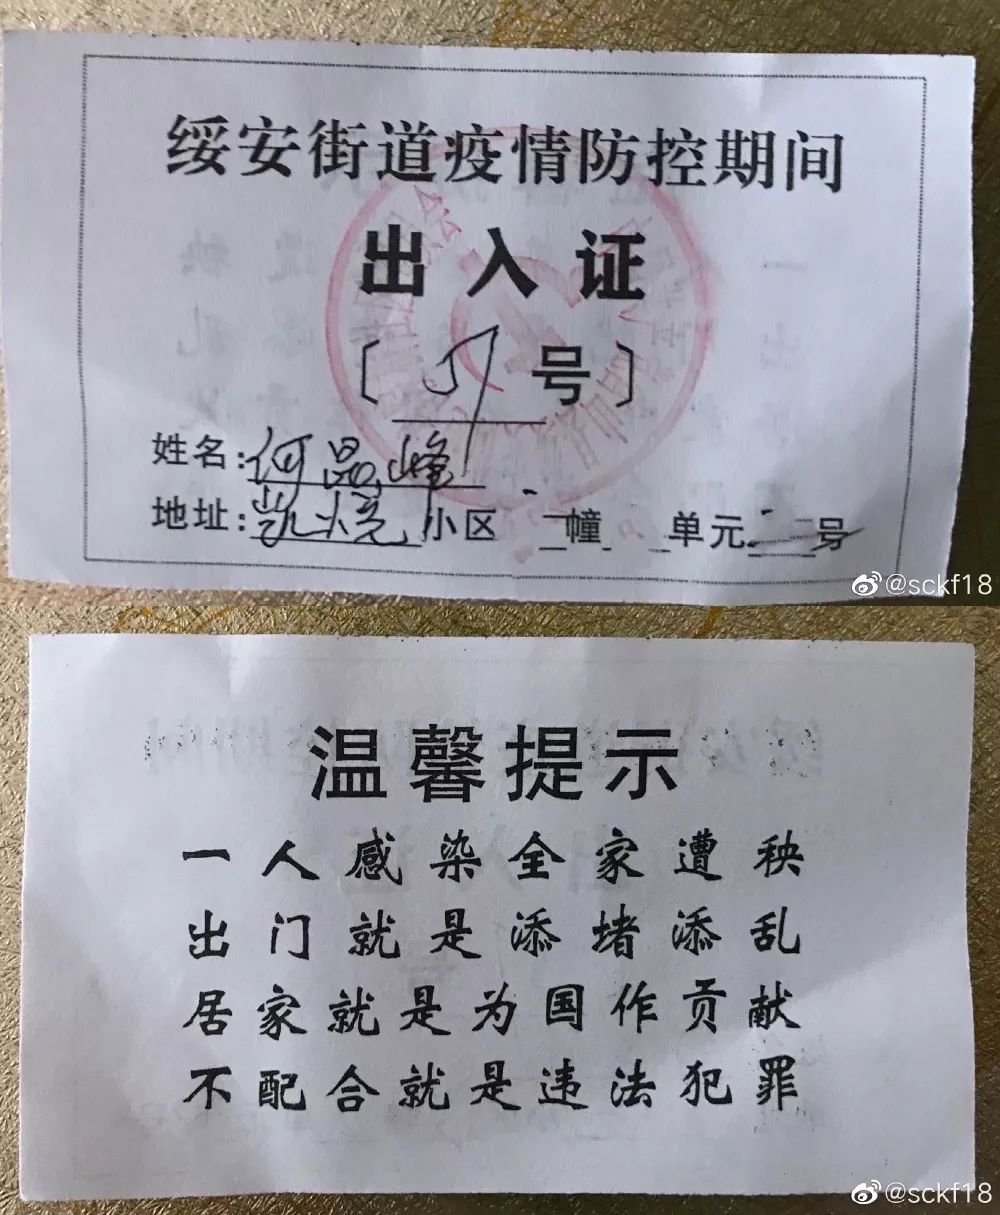 绥安街道疫情防控期间
出入证
〔 号〕
姓名:何晶峰
地址:凯旋小区 幢 单元 号
@sckf18
温馨提示
一人感染全家遭秧
出门就是添堵添乱
居家就是为国作贡献
不配合就是违法犯罪
@sckf18